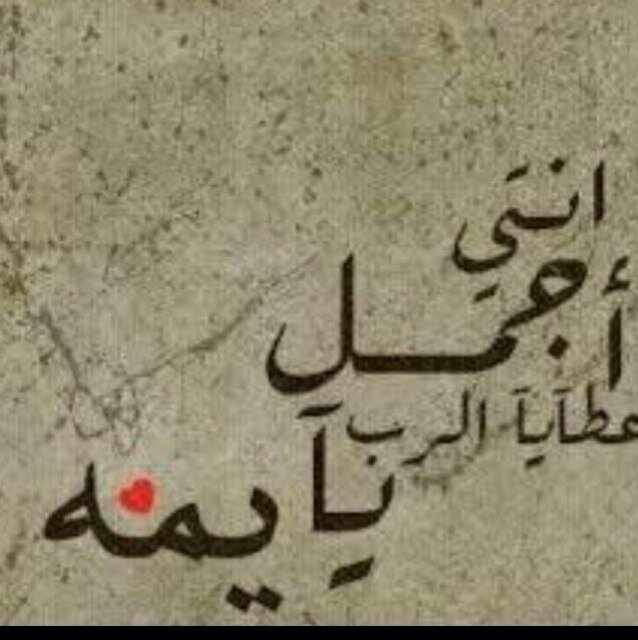 انتي
أجمل
عطآيآ الرب
يآ يمه